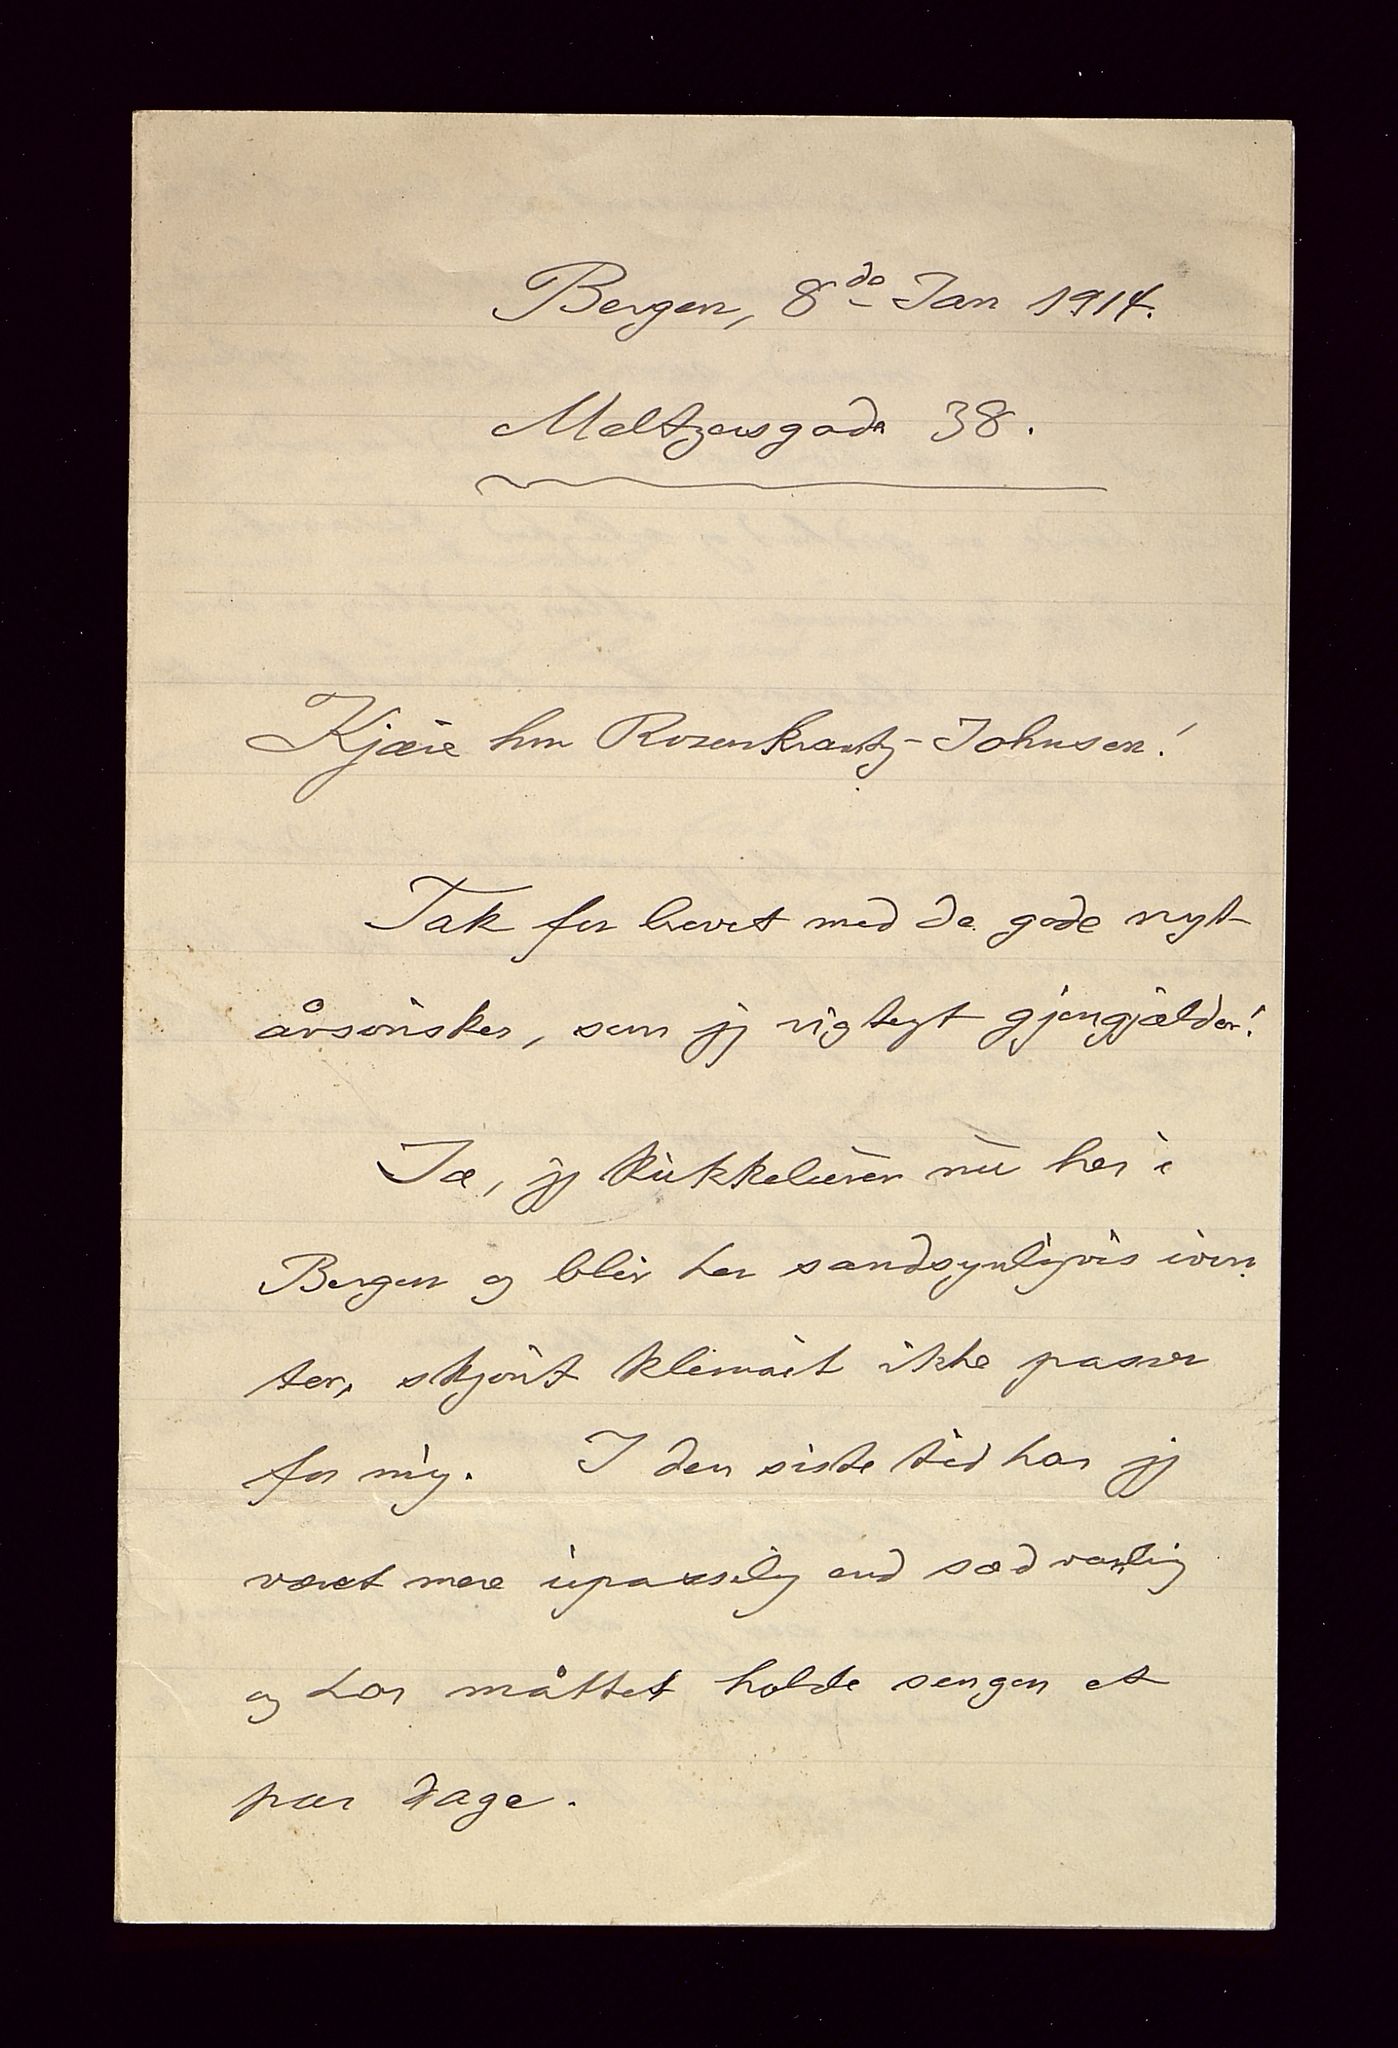 Bergen, 8de Jan 1914.
Meltzersgade 38.
Kjære hr Rosenkrantz-Johnsen!
Tak for brevet med de gode nyt-
årsønsker, som jeg rigtigt gjengjælder!
Ja, jeg kukkelurer nu her i
Bergen og blir her sandsynligvis ivin-
ter, skjønt klimait ikke passer
for mig. I den siste tid har jeg
været mere upasselig end sædvanlig
og har måttet holde sengen et
par dage.